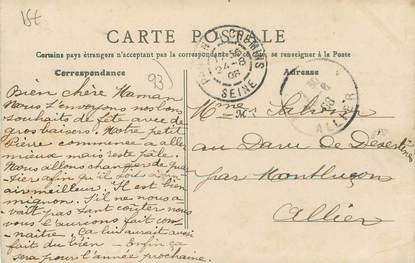 CARTE POSTALE
Certains pays étrangers n'acceptant pas la correspondance au recto, se renseigner à la Poste
Correspondance
Adresse
93
24-8
08
SEINE
ALLIER
Bien chère Maman
Nous t'envoyons nos bons
souhaits de fête avec de
gros baisers. Notre petit
Pierre commence a aller
mieux mais reste pâle.
Nous allons changer de quar
tier afin qu'il soit
air meilleur. Il est bien
mignon. S'il ne nous a
vait pas tant coûter nous
vous l'aurions fait con
naître. Ça lui aurait
fait du bien - Enfin ça
sera pour l'année prochaine.
Mme
au Dam de Désertines
par Montluçon
Allier